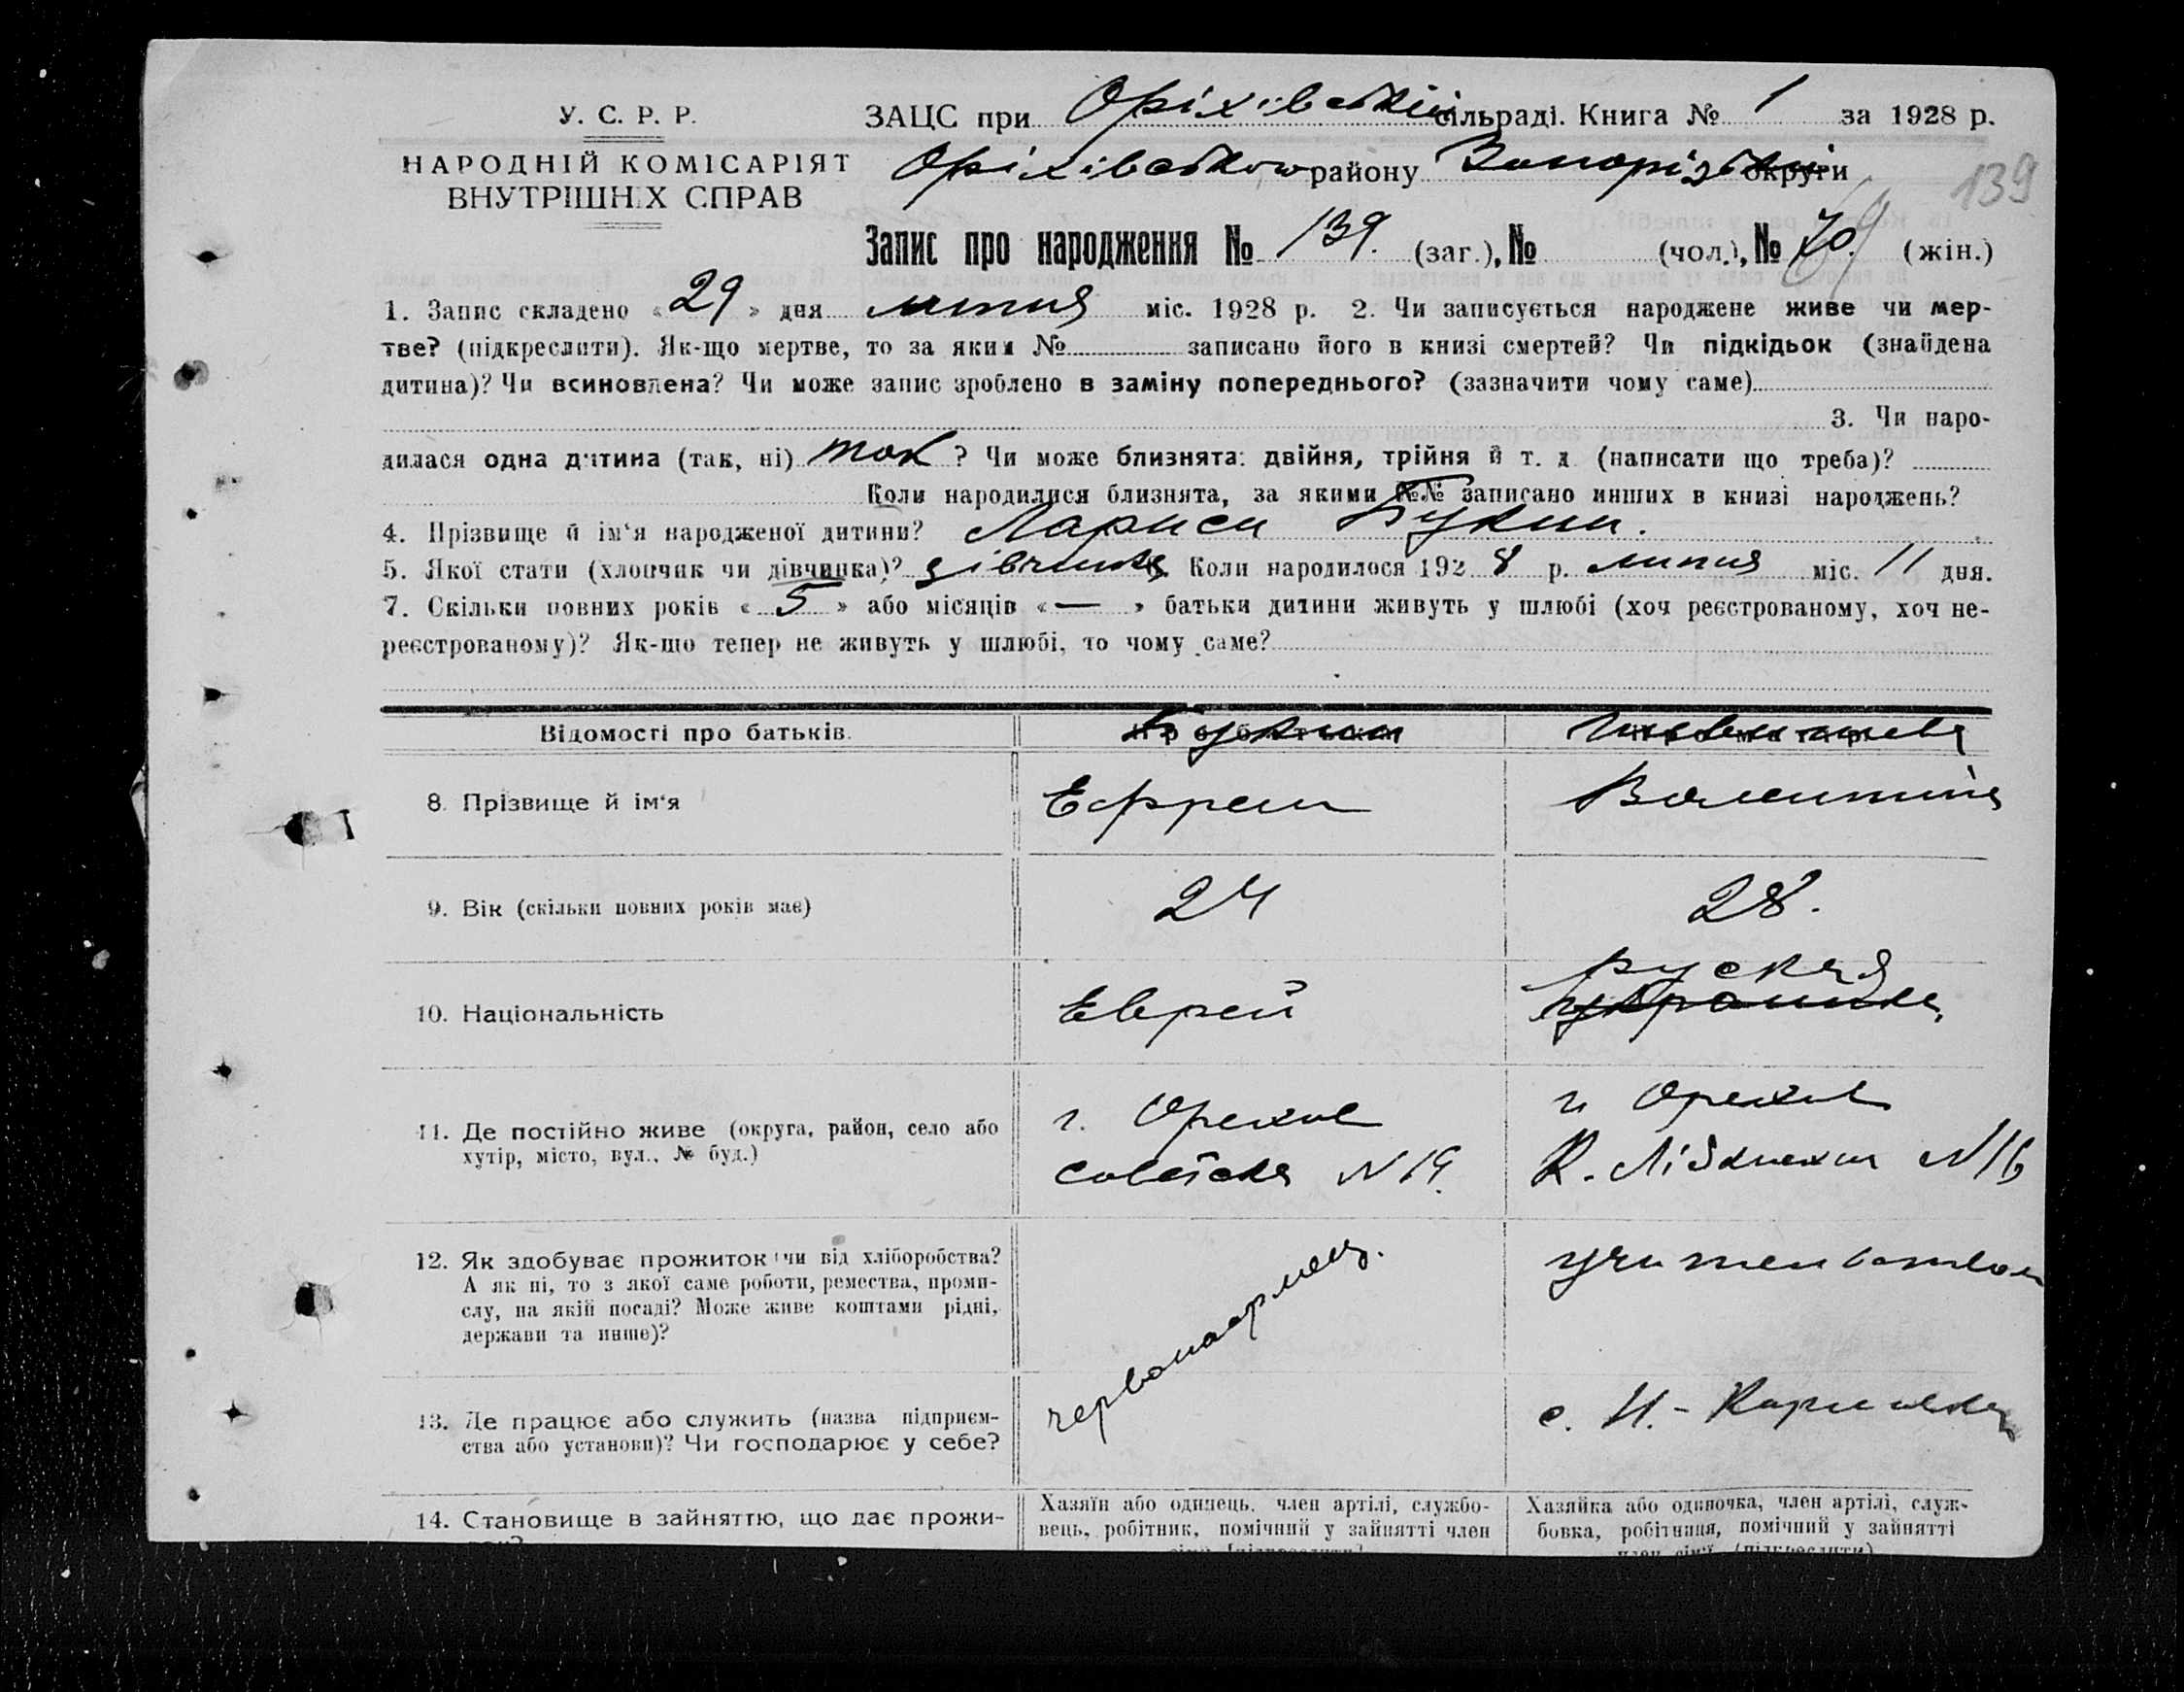 У. С. Р. Р.
НАРОДНІЙ КОМІСАРІЯТ
ВНУТРІШНІХ СПРАВ
ЗАЦС при Оріхівській сільраді. Книга № 1 за 1928 р.
Оріхівського району Запорізької округи
139
Запис про народження № 139. (заг.), № (чол.), № 70. 69 (жін.)
1. Запис складено « 29 » дня липня міс. 1928 р. 2. Чи записується народжене живе чи мер-
тве? (підкреслити). Як-що мертве, то за яким № записано його в книзі смертей? Чи підкідьок (знайдена
дитина)? Чи всиновлена? Чи може запис зроблено в заміну попереднього? (зазначити чому саме)
3. Чи наро-
дилася одна дитина (так, ні) так ? Чи може близнята: двійня, трійня й т. д. (написати що треба)?
Коли народилися близнята, за якими №№ записано инших в книзі народжень?
4. Прізвище й ім‘я народженої дитини? Лариса Букин.
5. Якої стати (хлопчик чи дівчинка)? дівчинка 6. Коли народилося 1928 р. липня міс. 11 дня.
7. Скільки повних років « 5 » або місяців « — » батьки дитини живуть у шлюбі (хоч реєстрованому, хоч не-
реєстрованому)? Як-що тепер не живуть у шлюбі, то чому саме?
Відомості про батьків.
Букин
8. Прізвище й ім‘я
Ефрем
Валентина
9. Вік (скільки повних років має)
24
28.
10. Національність
Еврей
руская
українка
11. Де постійно живе (округа, район, село або
хутір, місто, вул., № буд.)
г. Орехов
Советска N 19.
г. Орехов
К. Лібкнехта N 16
12. Як здобуває прожиток чи від хліборобства?
А як ні, то з якої саме роботи, ремества, проми-
слу, на якій посаді? Може живе коштами рідні,
держави та инше)?
червоноармец.
учительством
13. Де працює або служить (назва підприєм-
ства або установи)? Чи господарює у себе?
с. Н.-Карловка
14. Становище в зайняттю, що дає прожи-
Хазяїн або одинець, член артілі, службо-
вець, робітник, помічний у зайнятті член
Хазяйка або одиночка, член артілі, служ-
бовка, робітниця, помічний у зайнятті
член сім‘ї (підкреслити)